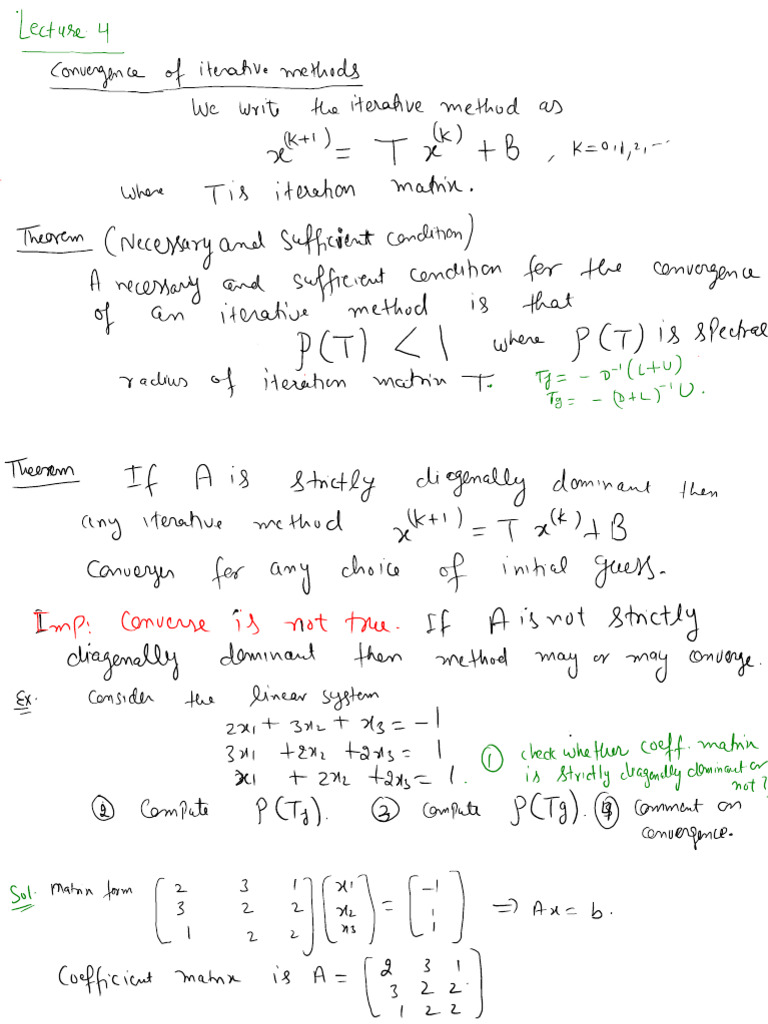 Lecture 4
Convergence of iterative methods
We write the iterative method as
x^(k+1) = T x^(k) + B , K=0,1,2,...
where T is iteration matrix.
Theorem (Necessary and Sufficient condition)
A necessary and sufficient condition for the convergence
of an iterative method is that
ρ(T) < 1 where ρ(T) is spectral
radius of iteration matrix T.
Tj = - D⁻¹(L+U)
Tg = - (D+L)⁻¹U.
Theorem If A is strictly diagonally dominant then
any iterative method x^(k+1) = T x^(k) + B
Converges for any choice of initial guess.
Imp: Converse is not true. If A is not strictly
diagonally dominant then method may or may converge.
Ex. Consider the linear system
2x1 + 3x2 + x3 = -1
3x1 + 2x2 + 2x3 = 1
x1 + 2x2 + 2x3 = 1.
① check whether coeff. matrix
is strictly diagonally dominant or
not?
② Compute ρ(Tj). ③ compute ρ(Tg). ④ comment on
convergence.
Sol. Matrix form [2 3 1; 3 2 2; 1 2 2] [x1; x2; x3] = [-1; 1; 1] ⇒ Ax = b.
Coefficient matrix is A = [2 3 1; 3 2 2; 1 2 2]